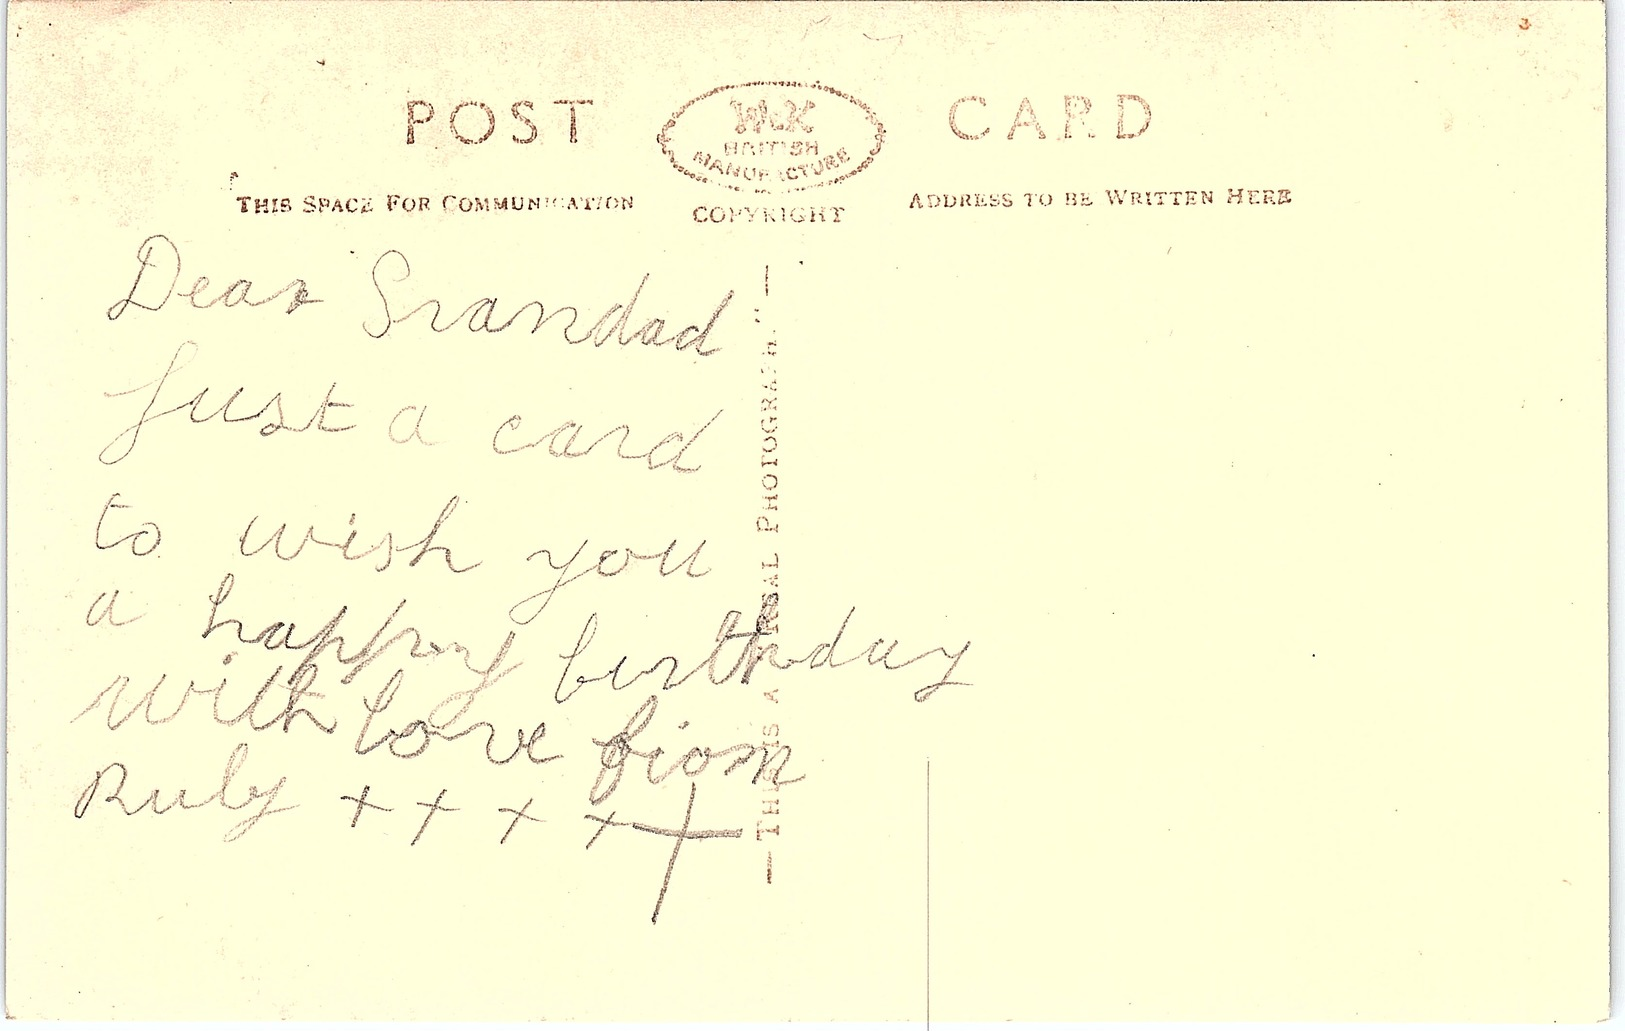 POST CARD
W.&K
BRITISH
MANUFACTURE
THIS SPACE FOR COMMUNICATION
COPYRIGHT
ADDRESS TO BE WRITTEN HERE
Dear Grandad
Just a card
to wish you
a happy birthday
with love from
Ruby x x x x x
—THIS IS A "REAL PHOTOGRAPH."—